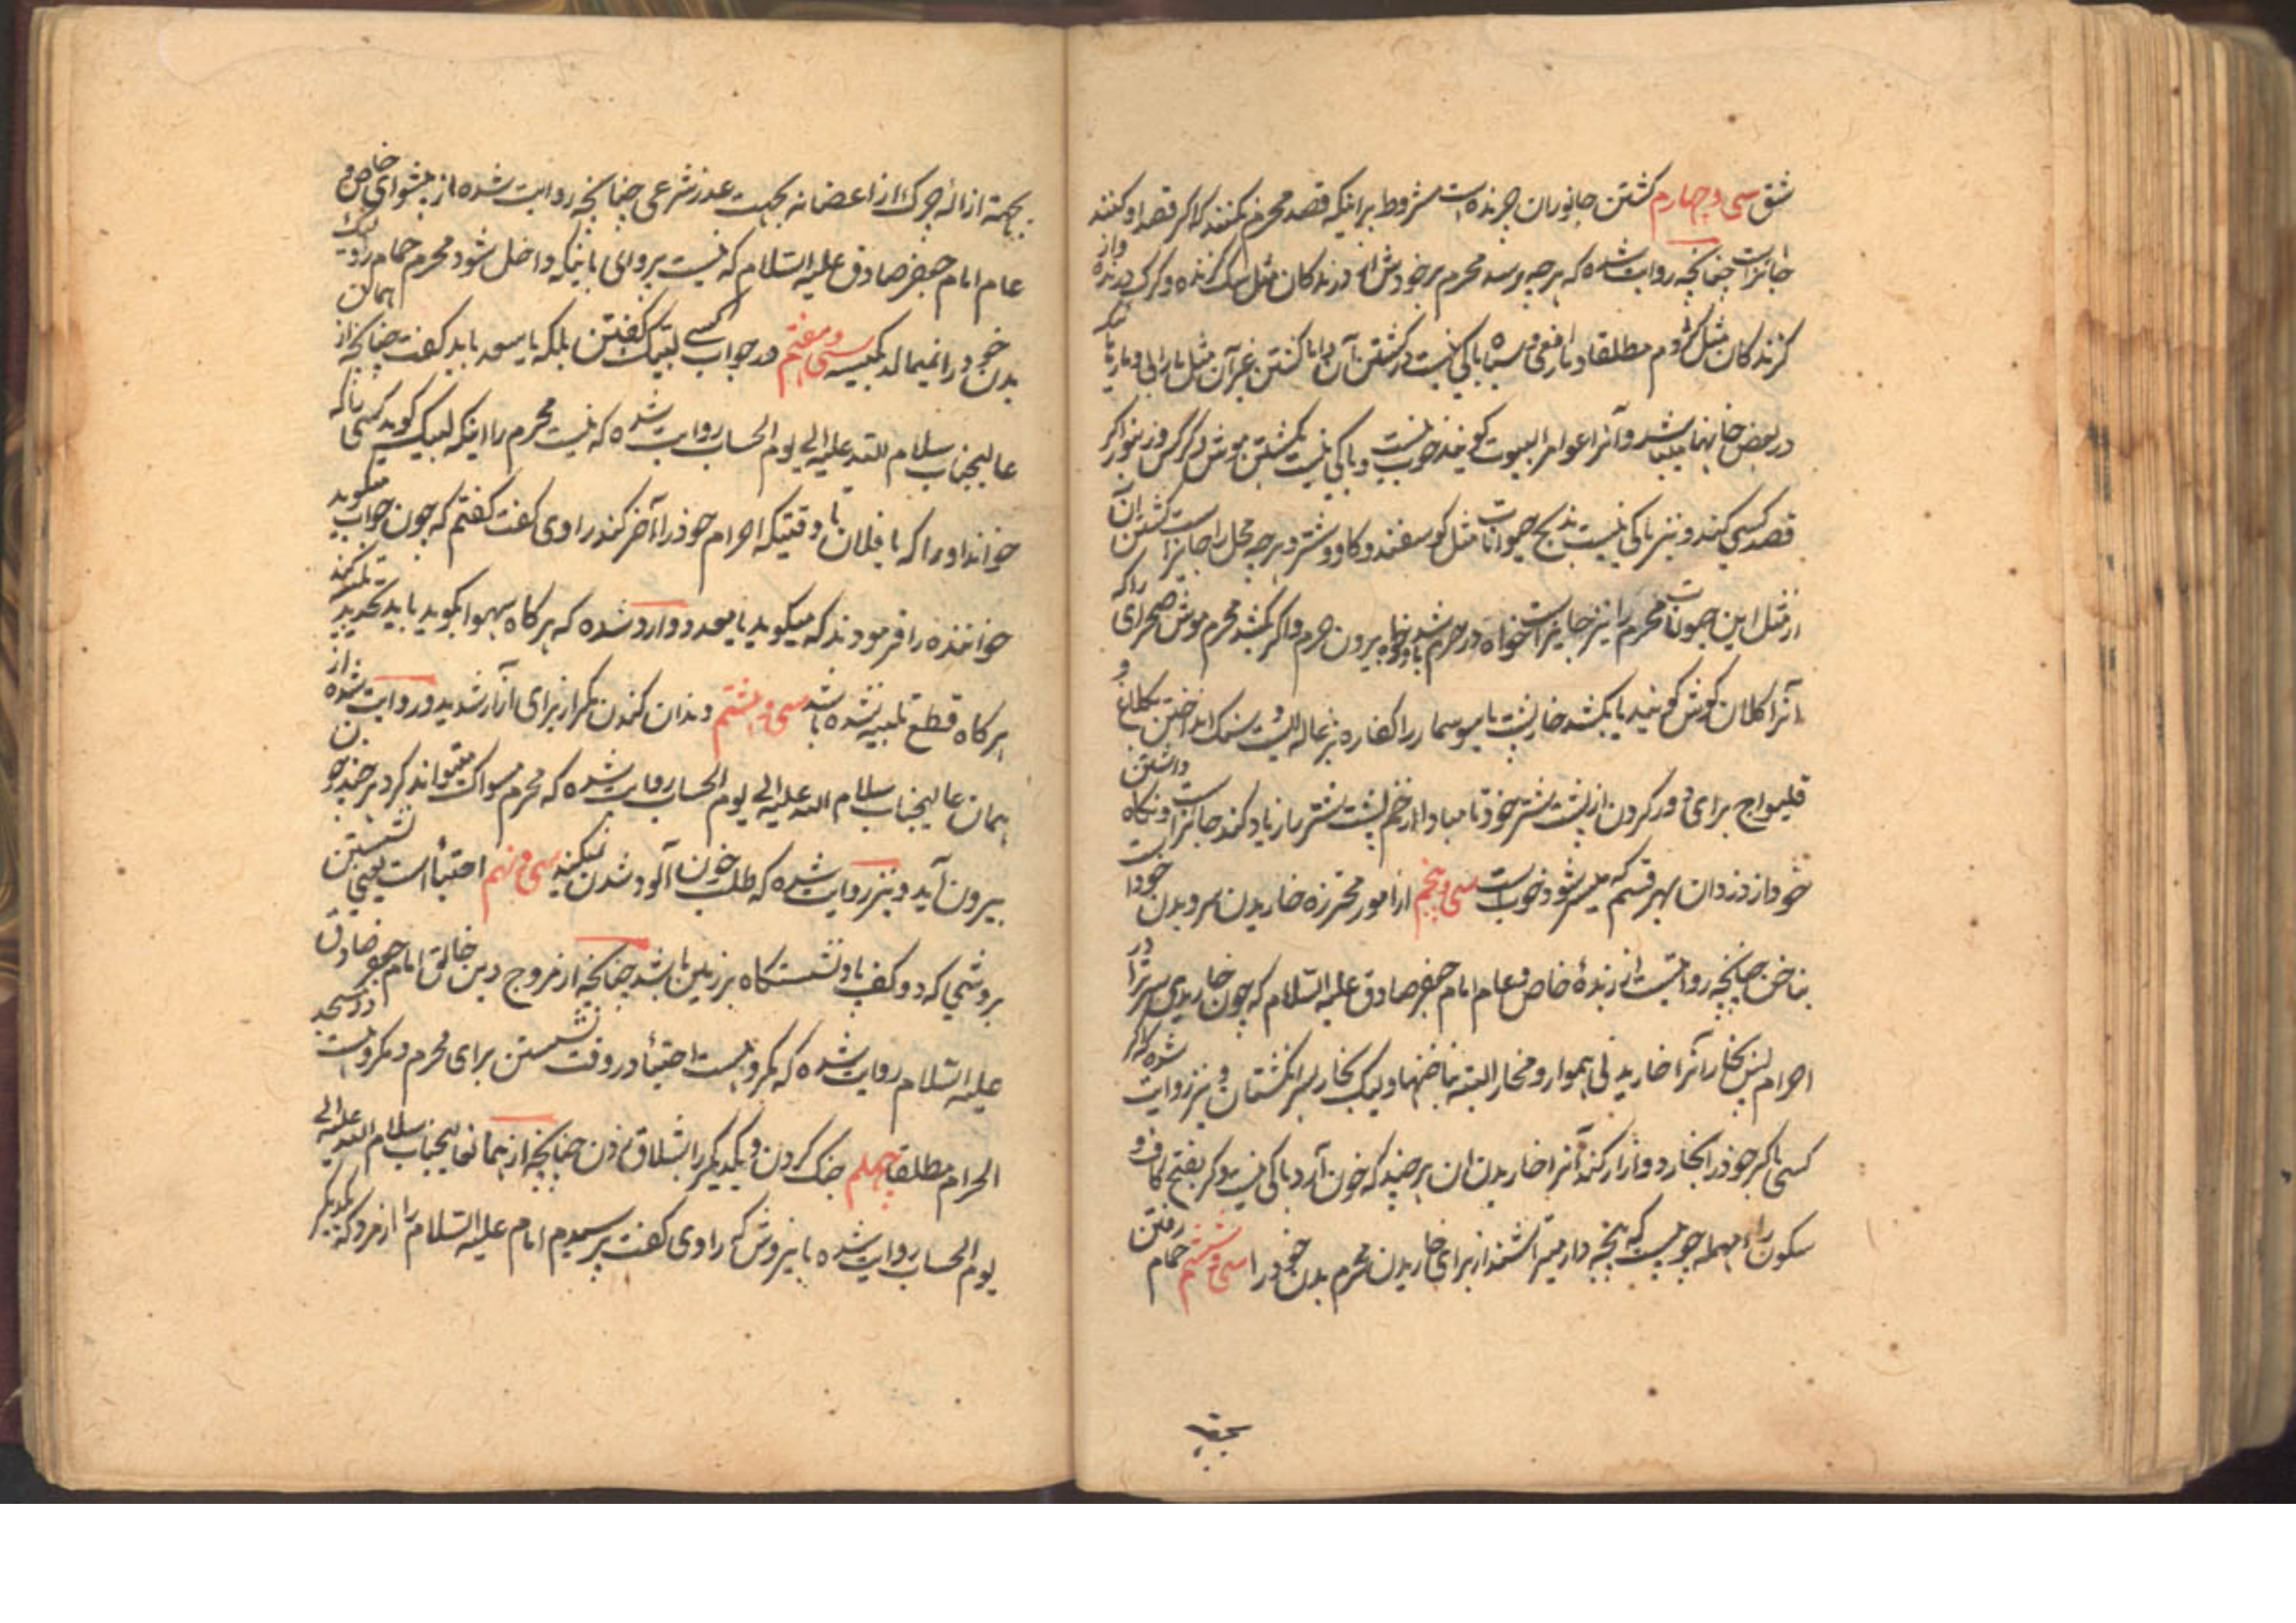 شق سی و چهارم کشتن جانوران چرنده است مشروط براینکه قصد محرم نکنند که اگر قصد او کنند
جائز است چنانچه روایت شده که هرچه برسد محرم بر خودش از درندگان مثل سگ گزنده و گرگ درنده و از
گزندگان مثل کژدم مطلقا و مار افعی و سیاه باکی نیست در کشتن آن اما کشتن غیر آن مثل مار ابی و مار
در بعض خانها میباشد و آنرا عوامر البیوت گویند خوب نیست و باکی نیست بکشتن موش و کرگس و زنبور اگر
قصد کسی کند و نیز باکی نیست بذبح حیوانات مثل گوسفند و گاو و شتر و هرچه محل را جائز است کشتن آن
از مثل این حیوانات محرم را نیز جایز است خواه در حرم باشد و خواه بیرون حرم و اگر بکشد محرم موش صحرای را که
آنرا کلان گوش گویند یا بکشد خارپشت یا سوسمار را کفاره بزغاله ایست و سنگ انداختن کلاغ و
قلیواج برای دور کردن از پشت شتر خود تا مبادا زخم پشت شتر را زیاد کند جائز است و نگاه داشتن
خود از دزدان بهر قسم که میسر شود خوب است سی و پنجم از امور محترزه خاریدن سر و بدن خود است
بناخن چنانچه روایت است از زبدهٔ خاص و عام امام جعفر صادق علیه السلام که چون خاریدی سر ترا در
احرام پس بخار آنرا خاریدنی هموار و مخار البته بناخنها ولیک بخار بسر انگشتان و نیز روایت شده که اگر
کسی ذکر خود را بخارد و آزار کند آنرا خاریدن ان هرچند که خون آرد باکی نیست و کر بفتح کاف و
سکون راء مهمله چوبیست که پنجه دار میتراشند از برای خاریدن محرم بدن خود را سی و ششم حمام رفتن
بجهة
بجهة ازالهٔ چرک از اعضا نه بجهت عذر شرعی چنانچه روایت شده از پیشوای خاص و
عام امام جعفر صادق علیه السلام که نیست پروای باینکه داخل شود محرم حمام را ولیک
بدن خود را نمیمالد بکیسه سی و هفتم در جواب کسی لبیک گفتن بلکه یا سعد باید گفت چنانچه از همان
عالیجناب سلام الله علیه الی یوم الحساب روایت شده که نیست محرم را اینکه لبیک گوید کسی را که
خواند او را که یا فلان تا وقتیکه احرام خود را آخر کند راوی گفت گفتم که چون جواب میگوید
خواننده را فرمودند که میگوید یا سعد و وارد شده که هرگاه سهوا بگوید باید تجدید تلبیه کند
هرگاه قطع تلبیه نشده باشد سی و هشتم دندان کندن مگر از برای آزار شدید و روایت شده از
همان عالیجناب سلام الله علیه الی یوم الحساب روایت شده که محرم مسواک میتواند کرد هرچند خون
بیرون آید و نیز روایت شده که طلب خون آلود شدن نکنید سی و نهم احتبا است یعنی نشستن
بروشی که دو کف پا و نشستگاه بر زمین باشد چنانچه از مروج دین خالق امام جعفر صادق
علیه السلام روایت شده که مکروه است احتبا در وقت نشستن برای محرم و مکروه است در مسجد
الحرام مطلقا چهلم جنگ کردن و یکدیگر را بشلاق زدن چنانچه از همان عالیجناب سلام الله علیه الی
یوم الحساب روایت شده باینروش که راوی گفت پرسیدم امام علیه السلام را از مردی که یکدیگر